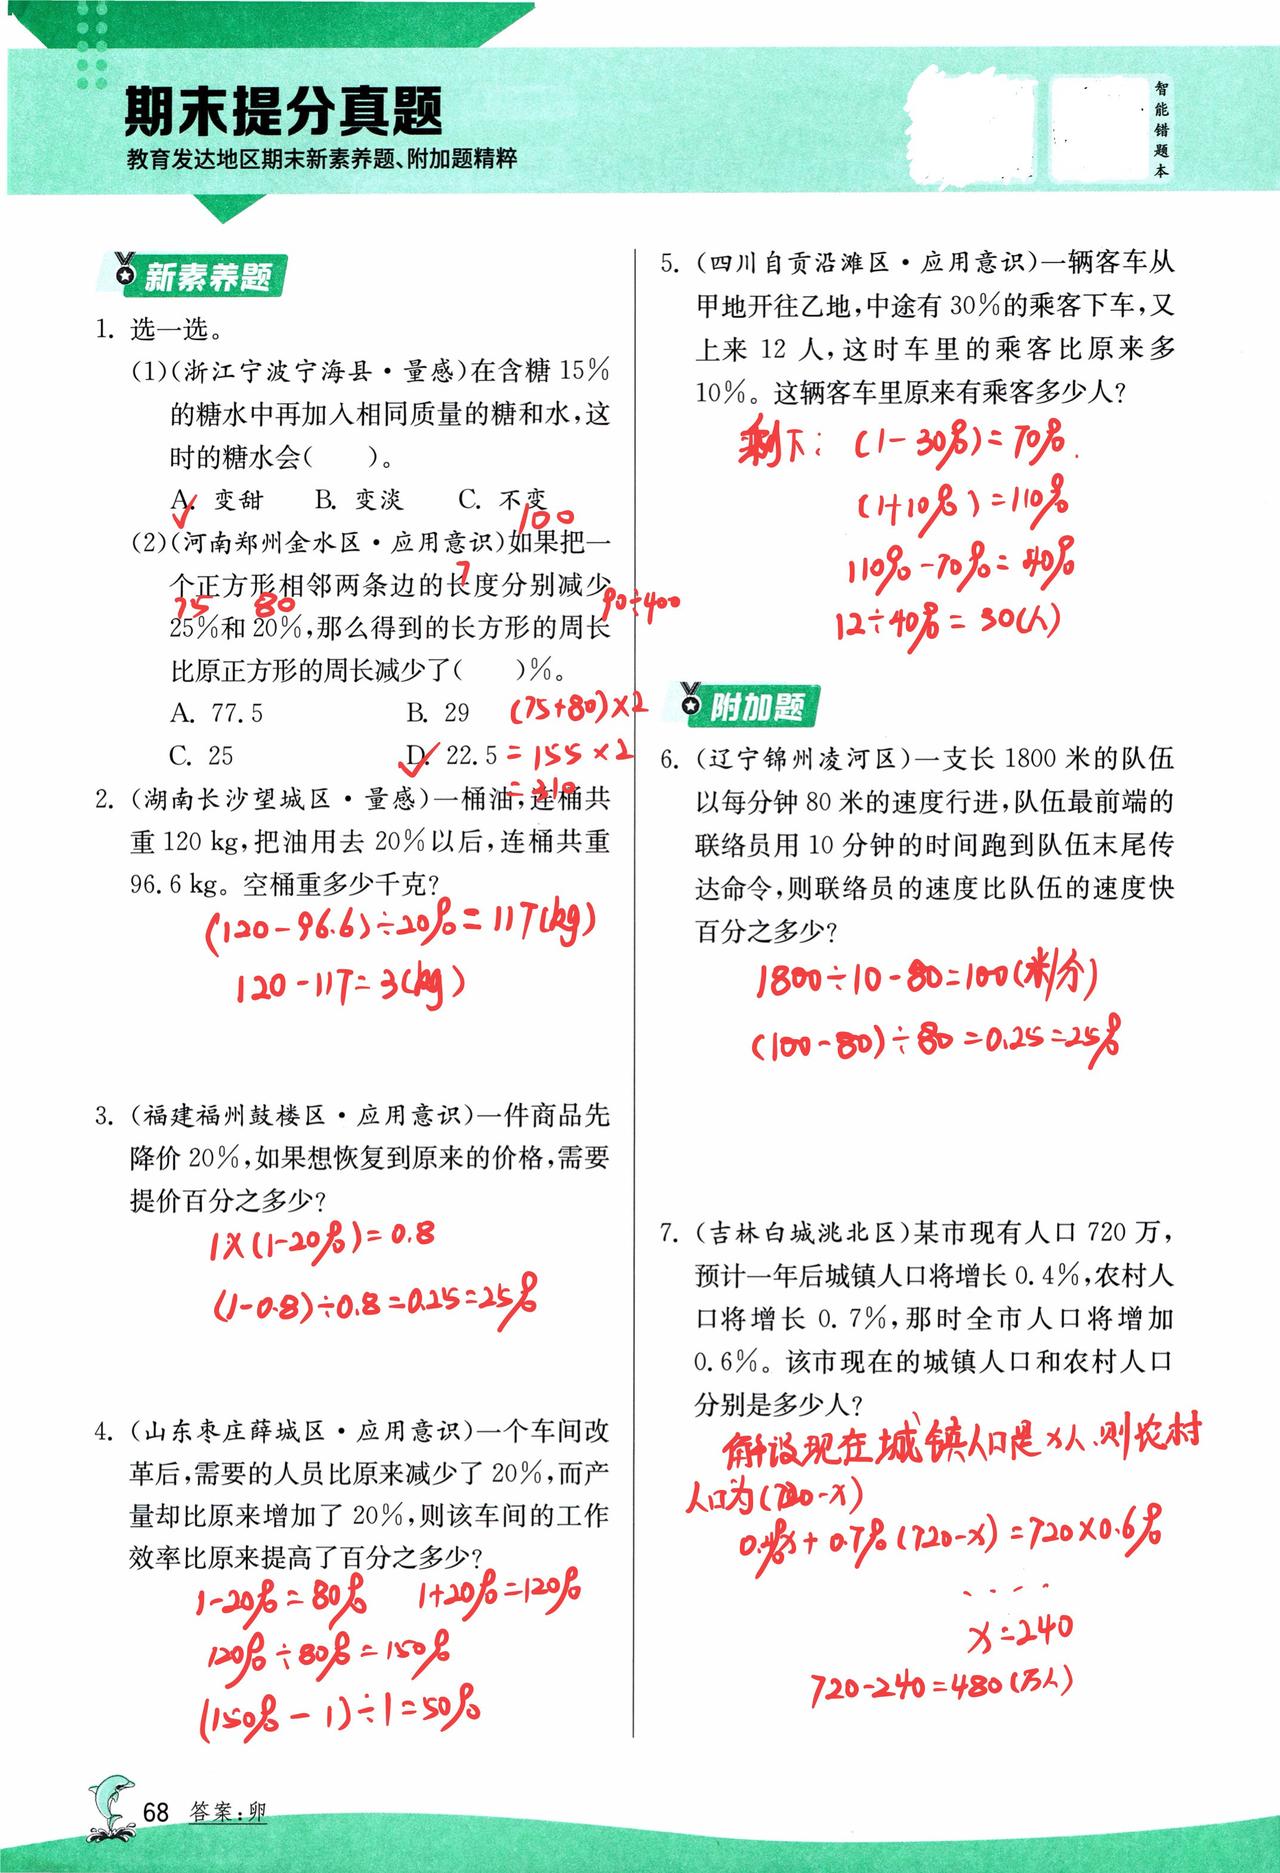 期末提分真题
教育发达地区期末新素养题、附加题精粹
智能错题本
新素养题
1. 选一选。
(1)(浙江宁波宁海县·量感)在含糖15%
的糖水中再加入相同质量的糖和水,这
时的糖水会(  )。
A. 变甜 B. 变淡 C. 不变
✓
100
(2)(河南郑州金水区·应用意识)如果把一
个正方形相邻两条边的长度分别减少
75 80 90÷400
25%和20%,那么得到的长方形的周长
比原正方形的周长减少了(  )%。
A. 77.5 B. 29
(75+80)×2
C. 25 D. 22.5
✓
=155×2
=310
2. (湖南长沙望城区·量感)一桶油,连桶共
重120 kg,把油用去20%以后,连桶共重
96.6 kg。空桶重多少千克?
(120-96.6)÷20%=117(kg)
120-117=3(kg)
3. (福建福州鼓楼区·应用意识)一件商品先
降价20%,如果想恢复到原来的价格,需要
提价百分之多少?
1×(1-20%)=0.8
(1-0.8)÷0.8=0.25=25%
4. (山东枣庄薛城区·应用意识)一个车间改
革后,需要的人员比原来减少了20%,而产
量却比原来增加了20%,则该车间的工作
效率比原来提高了百分之多少?
1-20%=80% 1+20%=120%
120%÷80%=150%
(150%-1)÷1=50%
5. (四川自贡沿滩区·应用意识)一辆客车从
甲地开往乙地,中途有30%的乘客下车,又
上来12人,这时车里的乘客比原来多
10%。这辆客车里原来有乘客多少人?
剩下: (1-30%)=70%.
(1+10%)=110%
110%-70%=40%
12÷40%=30(人)
附加题
6. (辽宁锦州凌河区)一支长1800米的队伍
以每分钟80米的速度行进,队伍最前端的
联络员用10分钟的时间跑到队伍末尾传
达命令,则联络员的速度比队伍的速度快
百分之多少?
1800÷10-80=100(米/分)
(100-80)÷80=0.25=25%
7. (吉林白城洮北区)某市现有人口720万,
预计一年后城镇人口将增长0.4%,农村人
口将增长0.7%,那时全市人口将增加
0.6%。该市现在的城镇人口和农村人口
分别是多少人?
解设现在城镇人口是x人,则农村
人口为(720-x)
0.4%x+0.7%(720-x)=720×0.6%
....
x=240
720-240=480(万人)
68 答案:卯